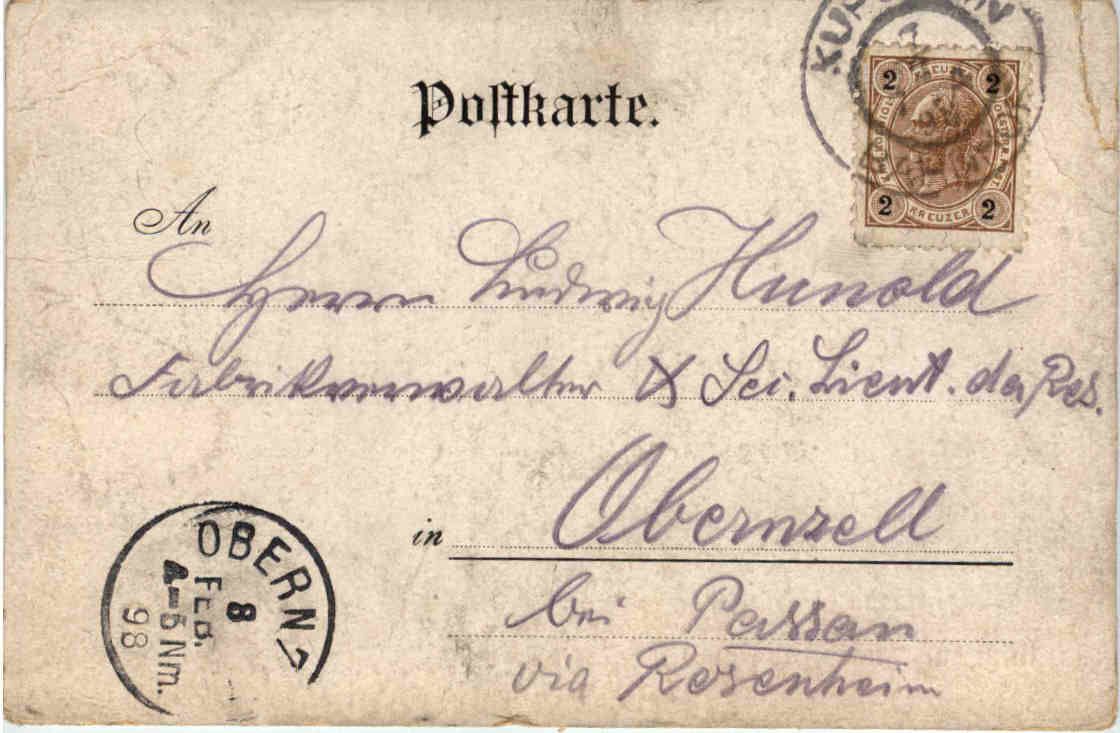 Postkarte.
2 KREUZER 2
2 KREUZER 2
An
Herrn Ludwig Hunold
Fabrikverwalter & Sec. Lieut. der Res.
in Obernzell
bei Passau
via Rosenheim
OBERNZ
8
FEB.
4-5 Nm.
98